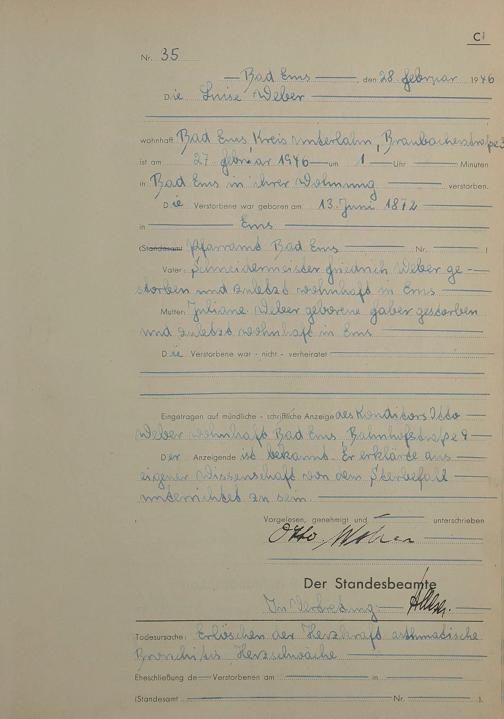 C
Nr. 35
Bad Ems, den 28. Februar 1946
Die Luise Weber
wohnhaft Bad Ems Kreis Unterlahn, Braubacherstraße 3
ist am 27. Februar 1946 um 1 Uhr Minuten
in Bad Ems in ihrer Wohnung verstorben.
Die Verstorbene war geboren am 13. Juni 1872
in Ems
(Standesamt Pfarramt Bad Ems Nr. )
Vater: Schneidermeister Friedrich Weber ge-
storben und zuletzt wohnhaft in Ems
Mutter: Juliane Weber geborene Faber gestorben
und zuletzt wohnhaft in Ems
Die Verstorbene war - nicht - verheiratet
Eingetragen auf mündliche - schriftliche Anzeige des Konditors Otto
Weber wohnhaft Bad Ems, Bahnhofstraße 9
Der Anzeigende ist bekannt. Er erklärte aus
eigener Wissenschaft von dem Sterbefall
unterrichtet zu sein.
Vorgelesen, genehmigt und unterschrieben
Otto Weber
Der Standesbeamte
In Vertretung:
Todesursache: Erlöschen der Herzkraft asthmatische
Bronchitis, Herzschwäche
Eheschließung de Verstorbenen am in
(Standesamt Nr. ).